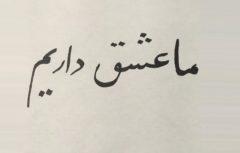 ما عشق داریم